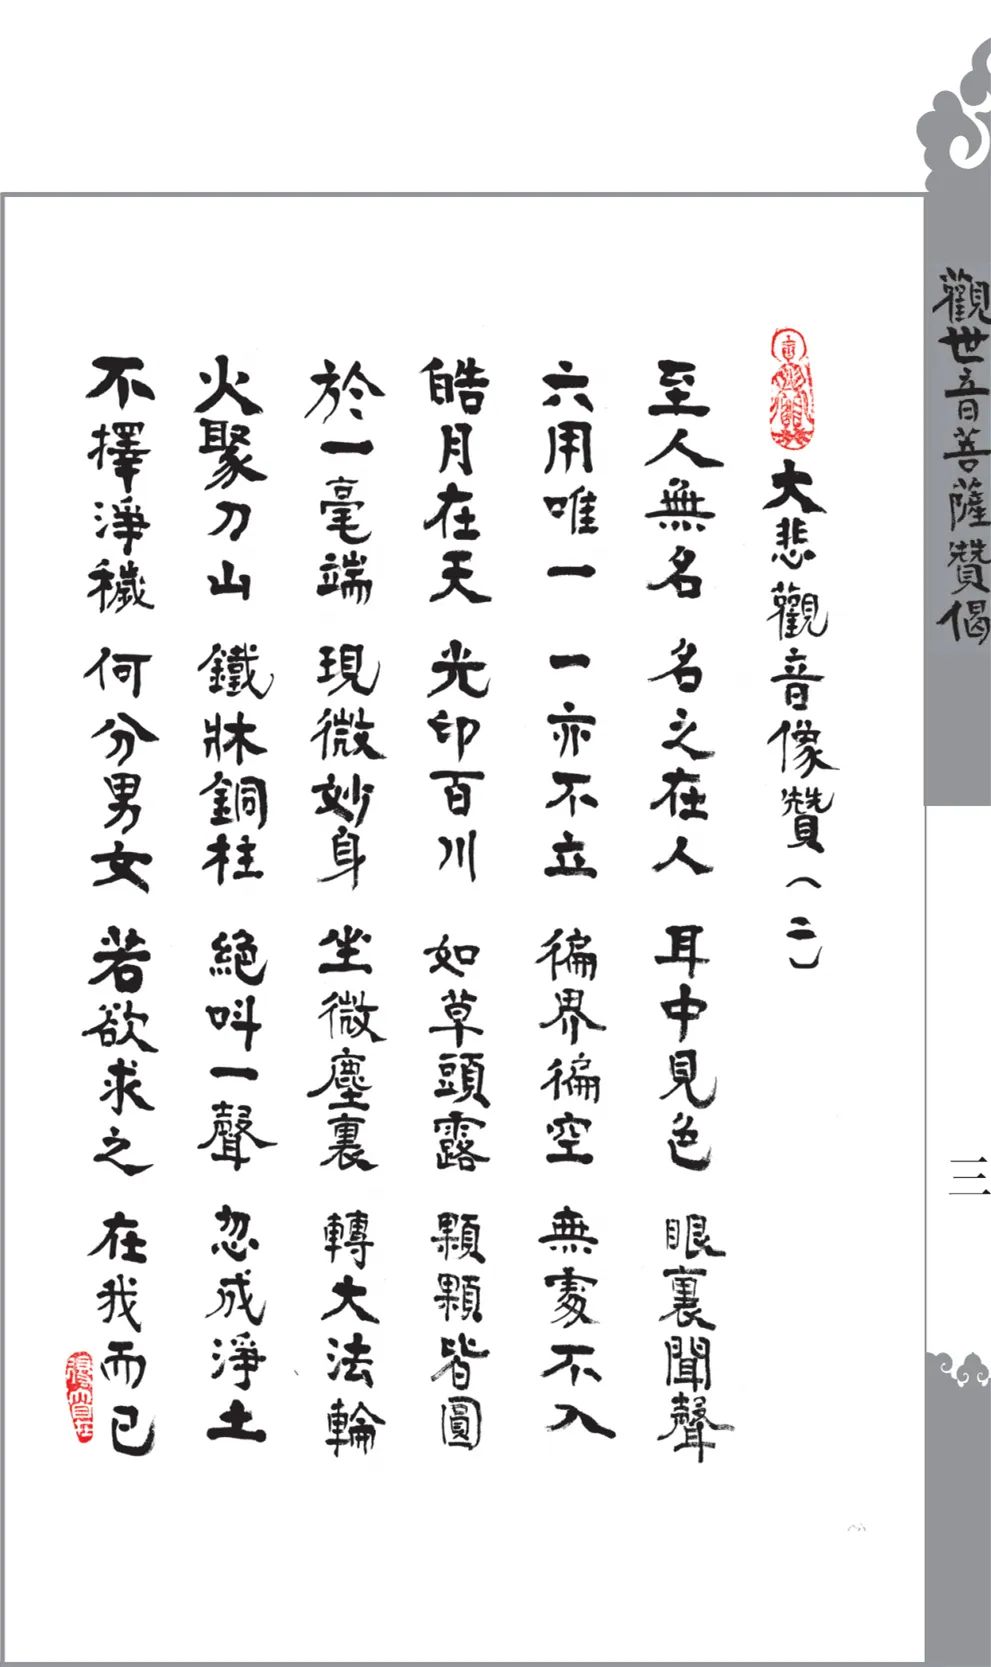 觀世音菩薩贊偈
大悲觀音像贊（二）
至人無名 名之在人 耳中見色 眼裏聞聲
六用唯一 一亦不立 徧界徧空 無處不入
皓月在天 光印百川 如草頭露 顆顆皆圓
於一毫端 現微妙身 坐微塵裏 轉大法輪
火聚刀山 鐵牀銅柱 絕叫一聲 忽成淨土
不擇淨穢 何分男女 若欲求之 在我而已
三